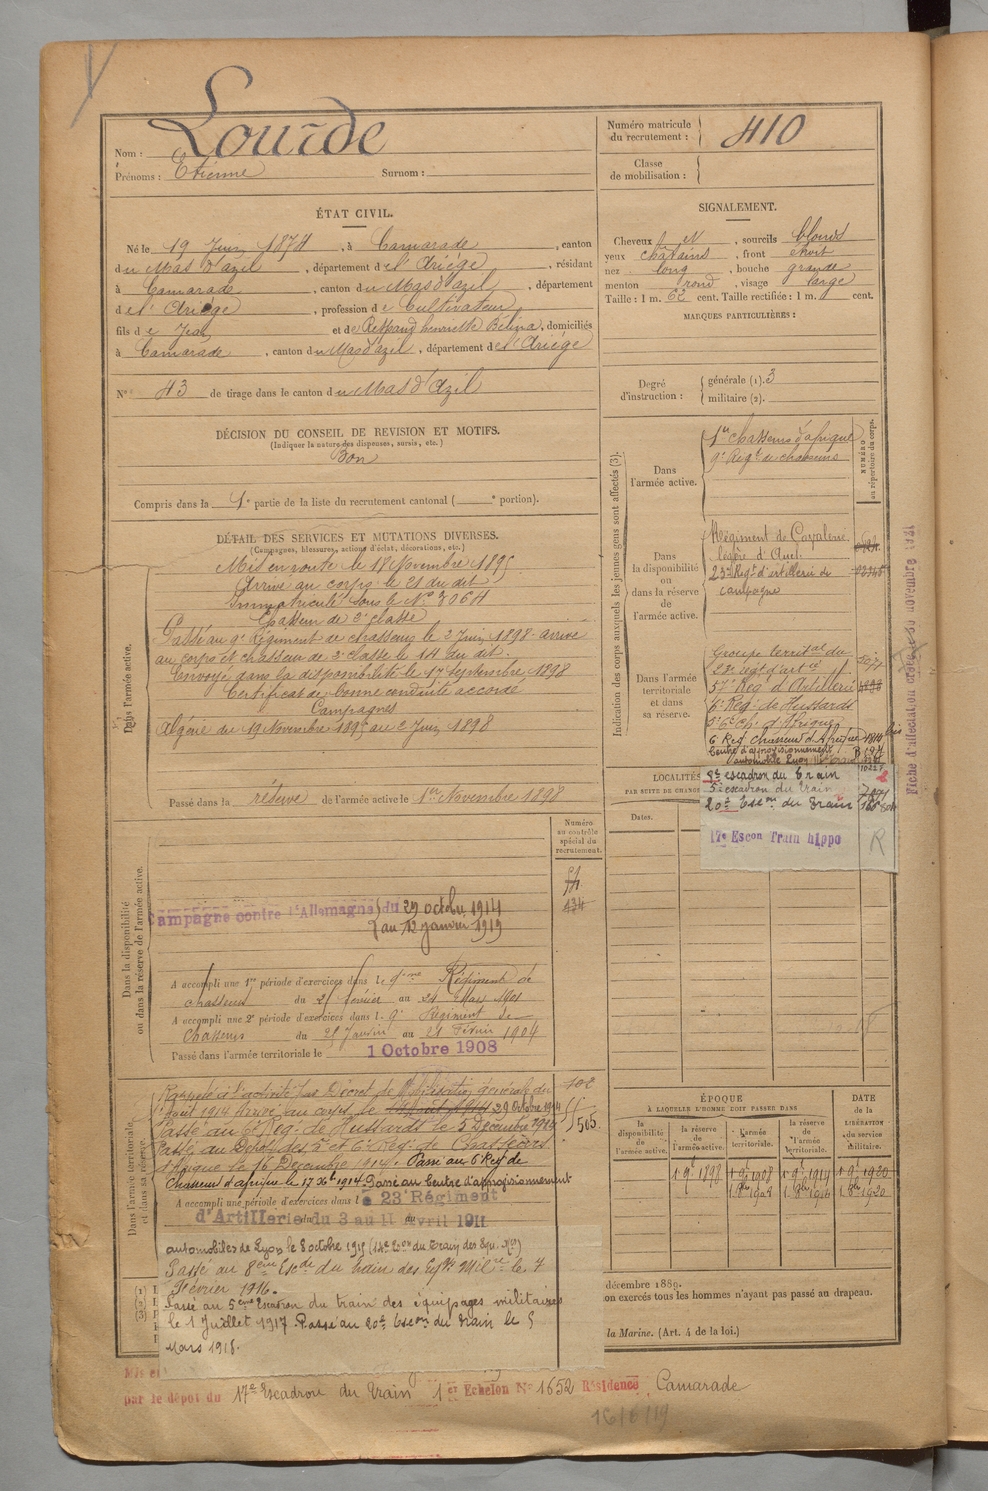 Nom : Lourde
Prénoms : Etienne Surnom :
Numéro matricule du recrutement : 410
Classe de mobilisation :
ÉTAT CIVIL.
Né le 19 Juin 1874, à Camarade, canton
du Mas d'azil, département de l'Ariège, résidant
à Camarade, canton du Mas d'azil, département
de l'Ariège, profession de Cultivateur
fils de Jean et de Henriette, domiciliés
à Camarade, canton du Mas d'azil, département de l'Ariège
N° 43 de tirage dans le canton du Mas d'Azil
SIGNALEMENT.
Cheveux N, sourcils blonds
yeux chatains, front étroit
nez long, bouche grande
menton rond, visage large
Taille : 1 m. 62 cent. Taille rectifiée : 1 m. cent.
MARQUES PARTICULIÈRES :
Degré d'instruction : générale (1). 3
militaire (2).
DÉCISION DU CONSEIL DE REVISION ET MOTIFS.
(Indiquer la nature des dispenses, sursis, etc.)
Bon
Compris dans la 1e partie de la liste du recrutement cantonal ( e portion).
DÉTAIL DES SERVICES ET MUTATIONS DIVERSES.
(Campagnes, blessures, actions d'éclat, décorations, etc.)
Dans l'armée active.
Mis en route le 18 Novembre 1895
Arrivé au corps le 21 du dit
Immatriculé sous le N° 3064
Chasseur de 2e classe
Passé au 9e Régiment de chasseurs le 2 Juin 1898 arrivé
au corps et chasseur de 2e classe le 14 du dit.
Envoyé dans la disponibilité le 17 septembre 1898
Certificat de bonne conduite accordé
Campagnes
Algérie du 19 Novembre 1895 au 2 Juin 1898
Passé dans la réserve de l'armée active le 1er Novembre 1898
Indication des corps auxquels les jeunes gens sont affectés (3).
NUMÉRO au répertoire du corps.
Dans l'armée active.
1er chasseurs d'afrique
9e Regt de chasseurs
Dans la disponibilité ou dans la réserve de l'armée active.
Régiment de Cavalerie
légère d'Auch
23e Regt d'artillerie de
campagne
Dans l'armée territoriale et dans sa réserve.
Groupe territal du
23e regt d'artie
57e Reg d'Artillerie
6e Reg. de Hussards
5e 6e Ch. d'Afrique
6 Reg Chasseurs d'Afrique
Centre d'approvisionnement
automobile Lyon
8e escadron du train
5e escadron du train
20e Escon du train
17e Escon Train hippo
R
Fiche d'affectation novembre 1931
LOCALITÉS
PAR SUITE DE CHANG
Dates.
Dans la disponibilité ou dans la réserve de l'armée active.
Numéro au contrôle spécial du recrutement.
Campagne contre l'Allemagne du 29 octobre 1914
au 12 janvier 1919
A accompli une 1re période d'exercices dans le 9ème Régiment de
chasseurs du 25 février au 24 Mars 1901
A accompli une 2e période d'exercices dans le 9e Régiment de
Chasseurs du 25 Janvier au 21 Février 1904
Passé dans l'armée territoriale le 1 Octobre 1908
Dans l'armée territoriale et dans sa réserve.
Rappelé à l'activité par Décret de Mobilisation générale du
1er Aout 1914 arrivé au corps le 29 Octobre 1914
Passé au 6e Reg. de Hussards le 5 Décembre 1914
Passé au Dépôt des 5e et 6e Reg. de Chasseurs
d'Afrique le 16 Décembre 1914. Passé au 6 Reg de
Chasseurs d'afrique le 17 Xbre 1914. Passé au Centre d'approvisionnement
A accompli une période d'exercices dans le 23e Régiment
d'Artillerie du 3 au 11 avril 1911
automobiles de Lyon le 8 octobre 1915 (14e Eson du Train des Equ. Mres)
Passé au 8ème Escon du train des Eqts Milres le 7
Février 1916.
Passé au 5ème Escadron du train des équipages militaires
le 1 Juillet 1917 Passé au 20e Escon du train le 5
Mars 1918.
102
565
ÉPOQUE
À LAQUELLE L'HOMME DOIT PASSER DANS
la disponibilité de l'armée active.
la réserve de l'armée active.
l'armée territoriale.
la réserve de l'armée territoriale.
DATE de la LIBÉRATION du service militaire.
1 9e 1898 1 9e 1908 1 9e 1914 1 9e 1920
1 8bre 1908 1 8bre 1914 1 8bre 1920
décembre 1889.
on exercés tous les hommes n'ayant pas passé au drapeau.
la Marine. (Art. 4 de la loi.)
Mis en
par le dépôt du 17e Escadron du Train 1er Echelon N° 1652 Résidence Camarade
16/6/19